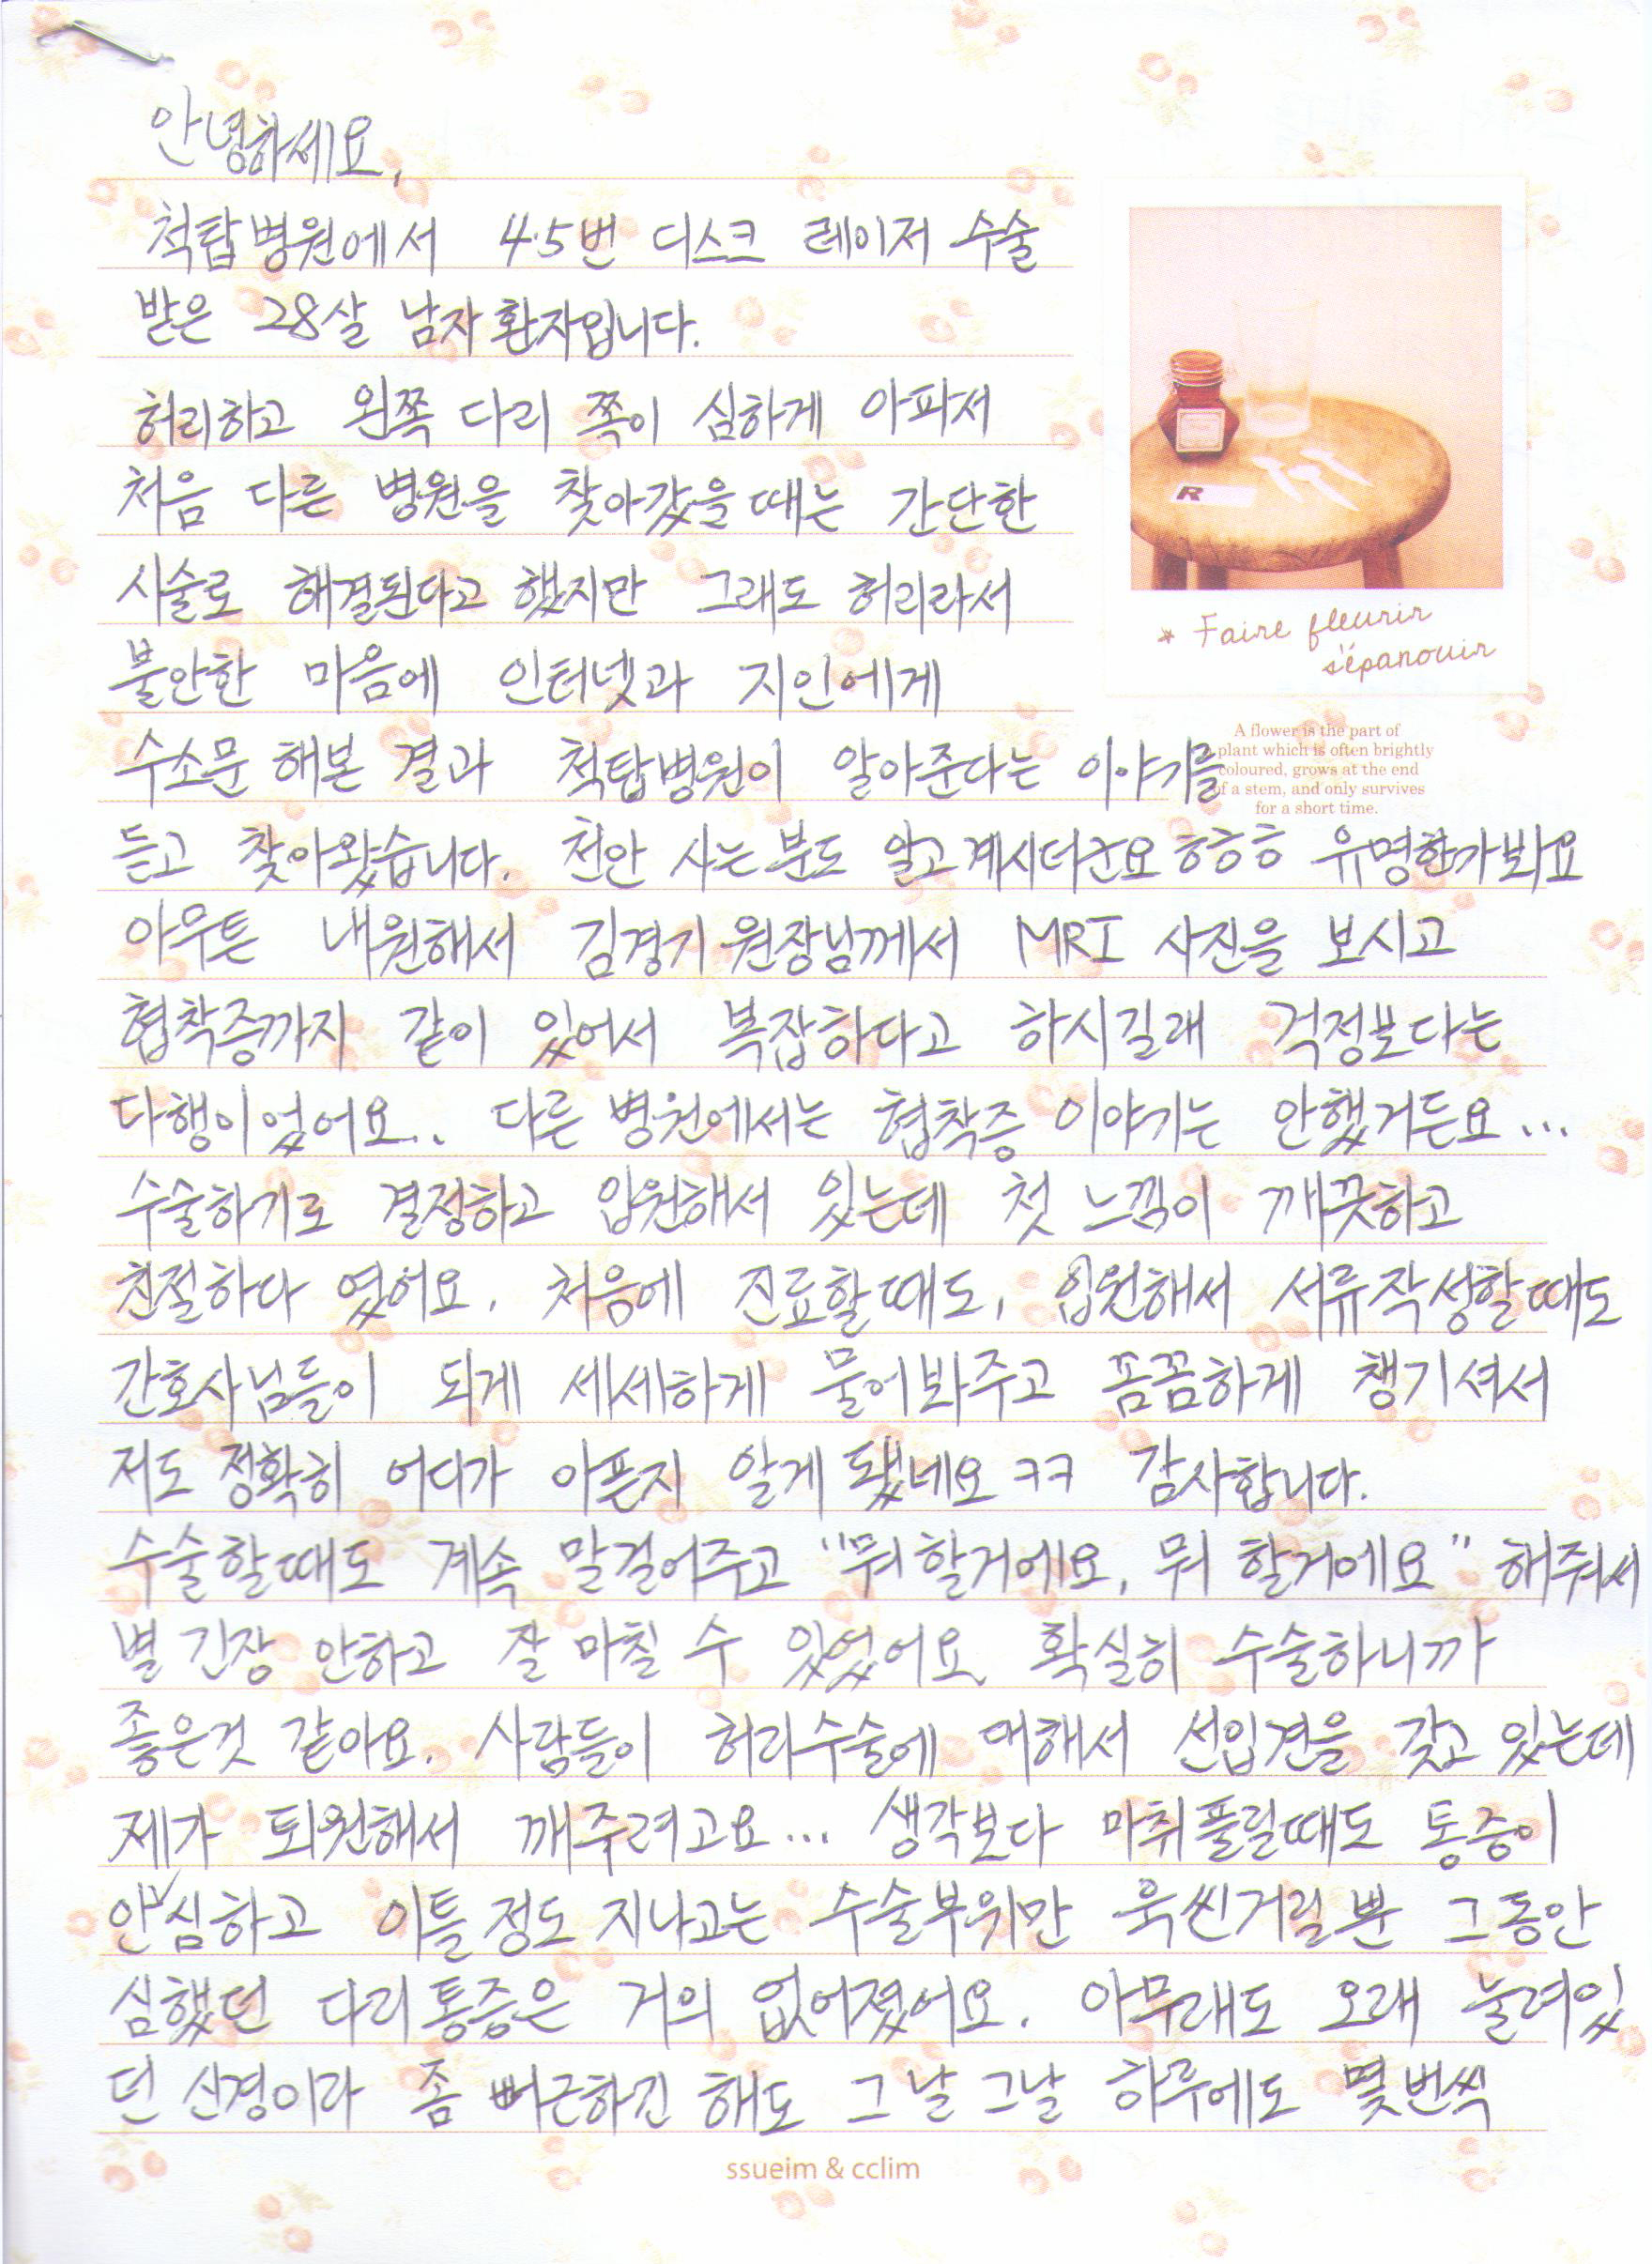 안녕하세요,
척탑병원에서 4.5번 디스크 레이저 수술
받은 28살 남자 환자입니다.
허리하고 왼쪽 다리 쪽이 심하게 아파서
처음 다른 병원을 찾아갔을때는 간단한
시술로 해결된다고 했지만 그래도 허리라서
불안한 마음에 인터넷과 지인에게
수소문 해본 결과 척탑병원이 알아준다는 이야기를
듣고 찾아왔습니다. 천안 사는분도 알고계시더군요 ㅎㅎㅎ 유명한가봐요
아무튼 내원해서 김경기 원장님께서 MRI 사진을 보시고
협착증까지 같이 있어서 복잡하다고 하시길래 걱정보다는
다행이었어요.. 다른 병원에서는 협착증 이야기는 안했거든요...
수술하기로 결정하고 입원해서 있는데 첫 느낌이 깨끗하고
친절하다 였어요. 처음에 진료할때도, 입원해서 서류작성할때도
간호사님들이 되게 세세하게 물어봐주고 꼼꼼하게 챙기셔서
저도 정확히 어디가 아픈지 알게 됐네요 ㅋㅋ 감사합니다.
수술할때도 계속 말걸어주고 "뭐할거에요, 뭐 할거에요" 해줘서
별 긴장 안하고 잘 마칠 수 있었어요. 확실히 수술하니까
좋은것 같아요. 사람들이 허리수술에 대해서 선입견을 갖고 있는데
제가 퇴원해서 깨주려고요... 생각보다 마취풀릴때도 통증이
안심하고 이틀정도 지나고는 수술부위만 욱씬거릴뿐 그동안
심했던 다리통증은 거의 없어졌어요. 아무래도 오래 눌려있
던 신경이라 좀 뻐근하긴 해도 그날그날 하루에도 몇번씩
* Faire fleurir
s'épanouir
A flower is the part of
plant which is often brightly
coloured, grows at the end
of a stem, and only survives
for a short time.
R
ssueim & cclim